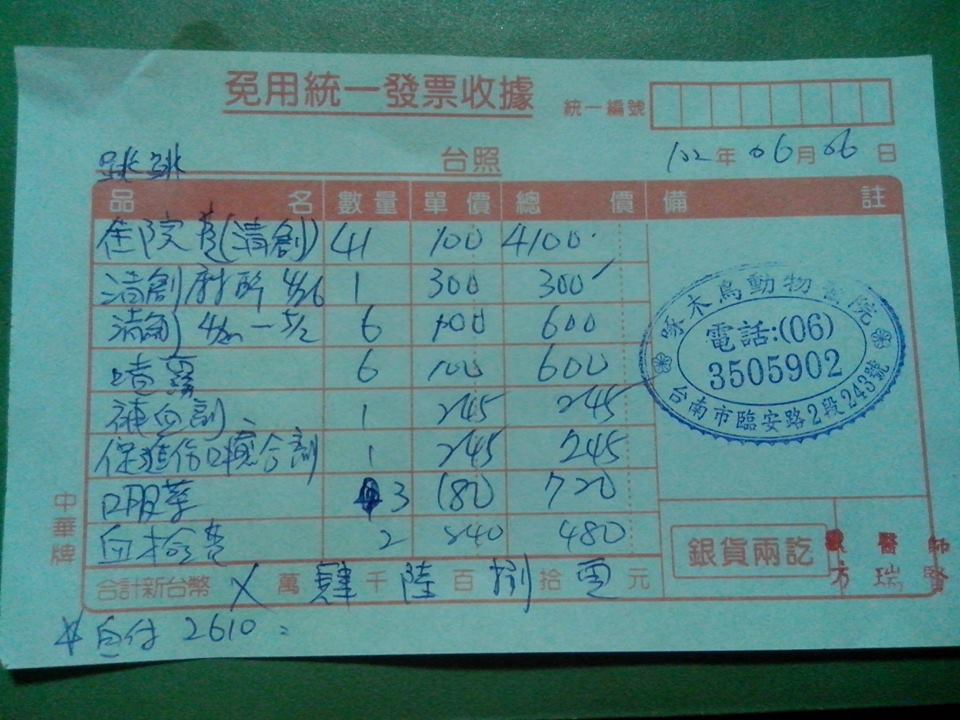 免用統一發票收據
統一編號
跳跳 台照
102年06月06日
品名 數量 單價 總價 備註
住院費(清創) 41 100 4100
清創 麻醉 4/26 1 300 300
清創 6 100 600
6 100 600
補血劑 1 245 245
促進傷口癒合劑 1 245 245
口服藥 3 180 720
血檢費 2 240 480
合計新台幣 X 萬 肆 千 陸 百 捌 拾 零 元
自付 2610
啄木鳥動物醫院
電話:(06)
3505902
台南市臨安路2段243號
銀貨兩訖
獸醫師
方瑞賢
中華牌